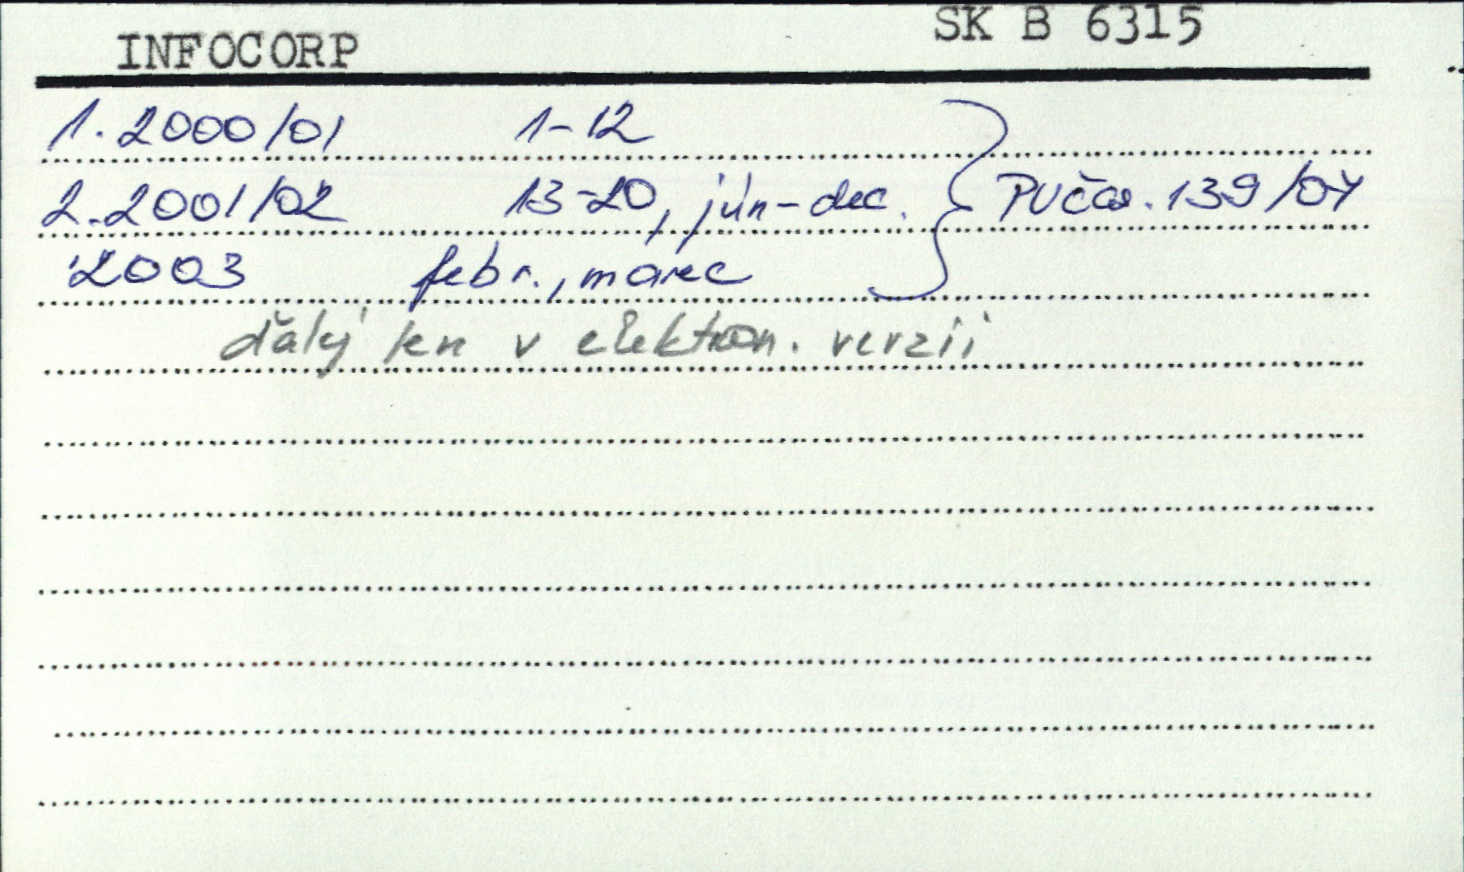 INFOCORP SK B 6315
1. 2000/01 1-12
2. 2001/02 13-20, jún-dec. PUčas. 139/04
2003 febr., marec
ďalej len v elektron. verzii